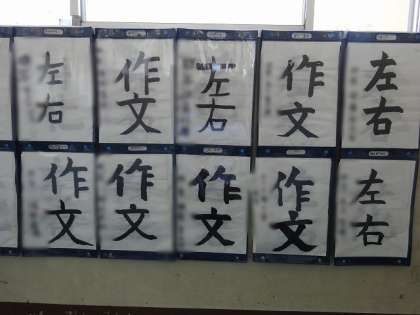 左右
作文
左右
作文
左右
作文
作文
作文
作文
左右